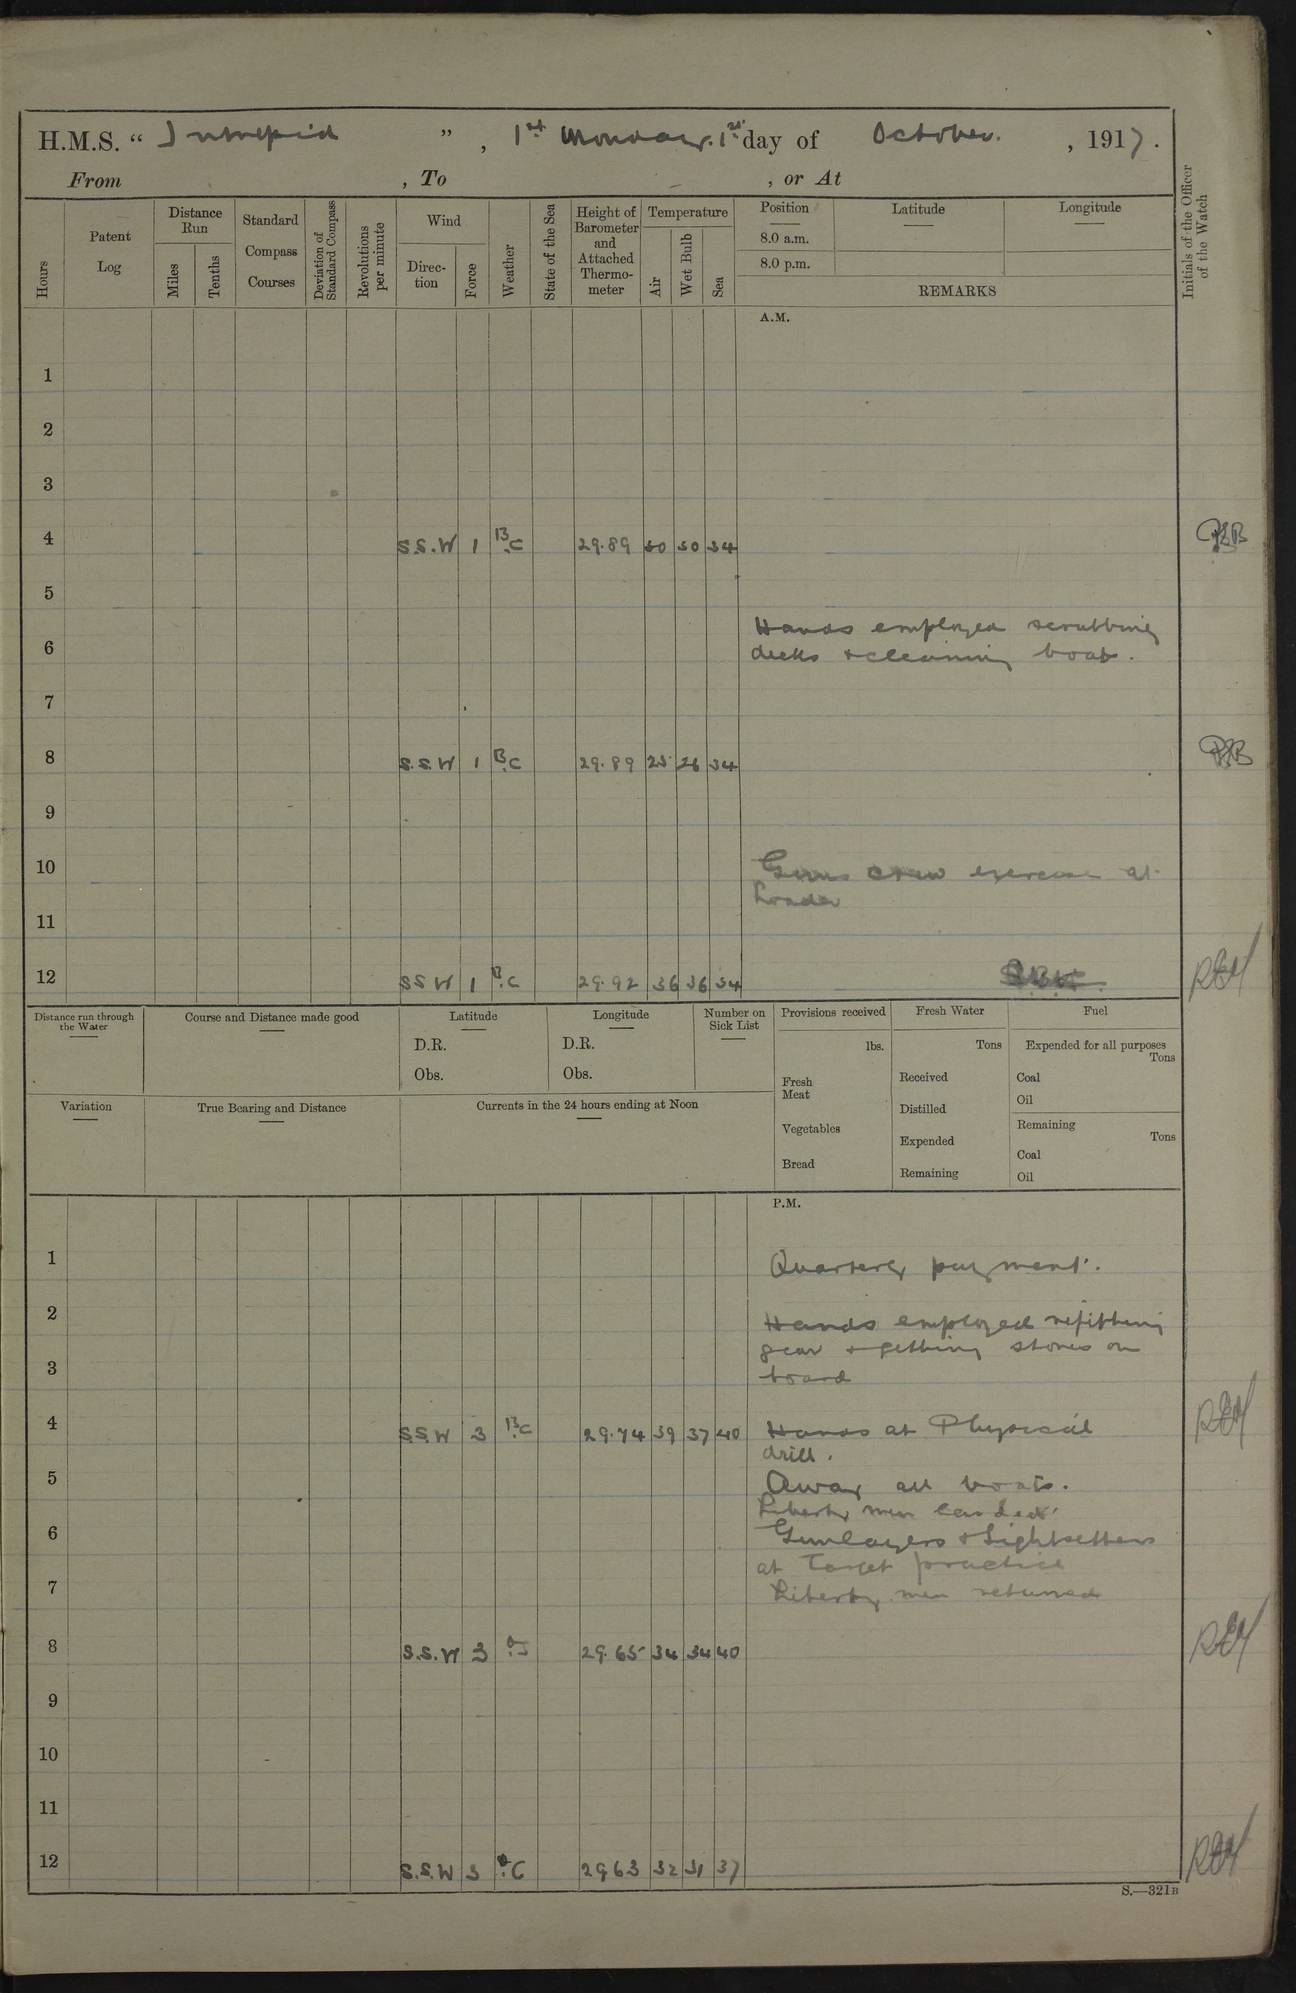 H.M.S. " Intrepid " , 1st Monday. 1st day of October. , 1917.
From , To , or At
Hours
Patent Log
Distance Run
Miles
Tenths
Standard Compass Courses
Deviation of Standard Compass
Revolutions per minute
Wind
Direc-tion
Force
Weather
State of the Sea
Height of Barometer and Attached Thermo-meter
Temperature
Air
Wet Bulb
Sea
Position
8.0 a.m.
8.0 p.m.
Latitude
Longitude
REMARKS
Initials of the Officer of the Watch
A.M.
1
2
3
4 S.S.W 1 B.C 29.89 30 30 34
5
Hands employed scrubbing
6 decks & cleaning boats.
7
8 S.S.W 1 B.C 29.89 25 26 34
9
10 Guns crew exercise at
loader
11
12 S S W 1 B.C 29.92 36 36 34
Distance run through the Water
Course and Distance made good
Latitude
D.R.
Obs.
Longitude
D.R.
Obs.
Number on Sick List
Provisions received
lbs.
Fresh Meat
Vegetables
Bread
Fresh Water
Tons
Received
Distilled
Expended
Remaining
Fuel
Expended for all purposes
Tons
Coal
Oil
Remaining
Tons
Coal
Oil
Variation
True Bearing and Distance
Currents in the 24 hours ending at Noon
P.M.
1 Quarterly payment.
2 Hands employed refitting
gear & getting stores on
3 board
4 S.S.W 3 B.C 29.74 39 37 40 Hands at Physical
drill.
5 Away all boats.
Liberty men landed.
6 Gunlayers & Sightsetters
at Target practice
7 Liberty men returned
8 S.S.W 3 29.65 34 34 40
9
10
11
12 S.S.W 3 29.63 32 31 37
S.—321B